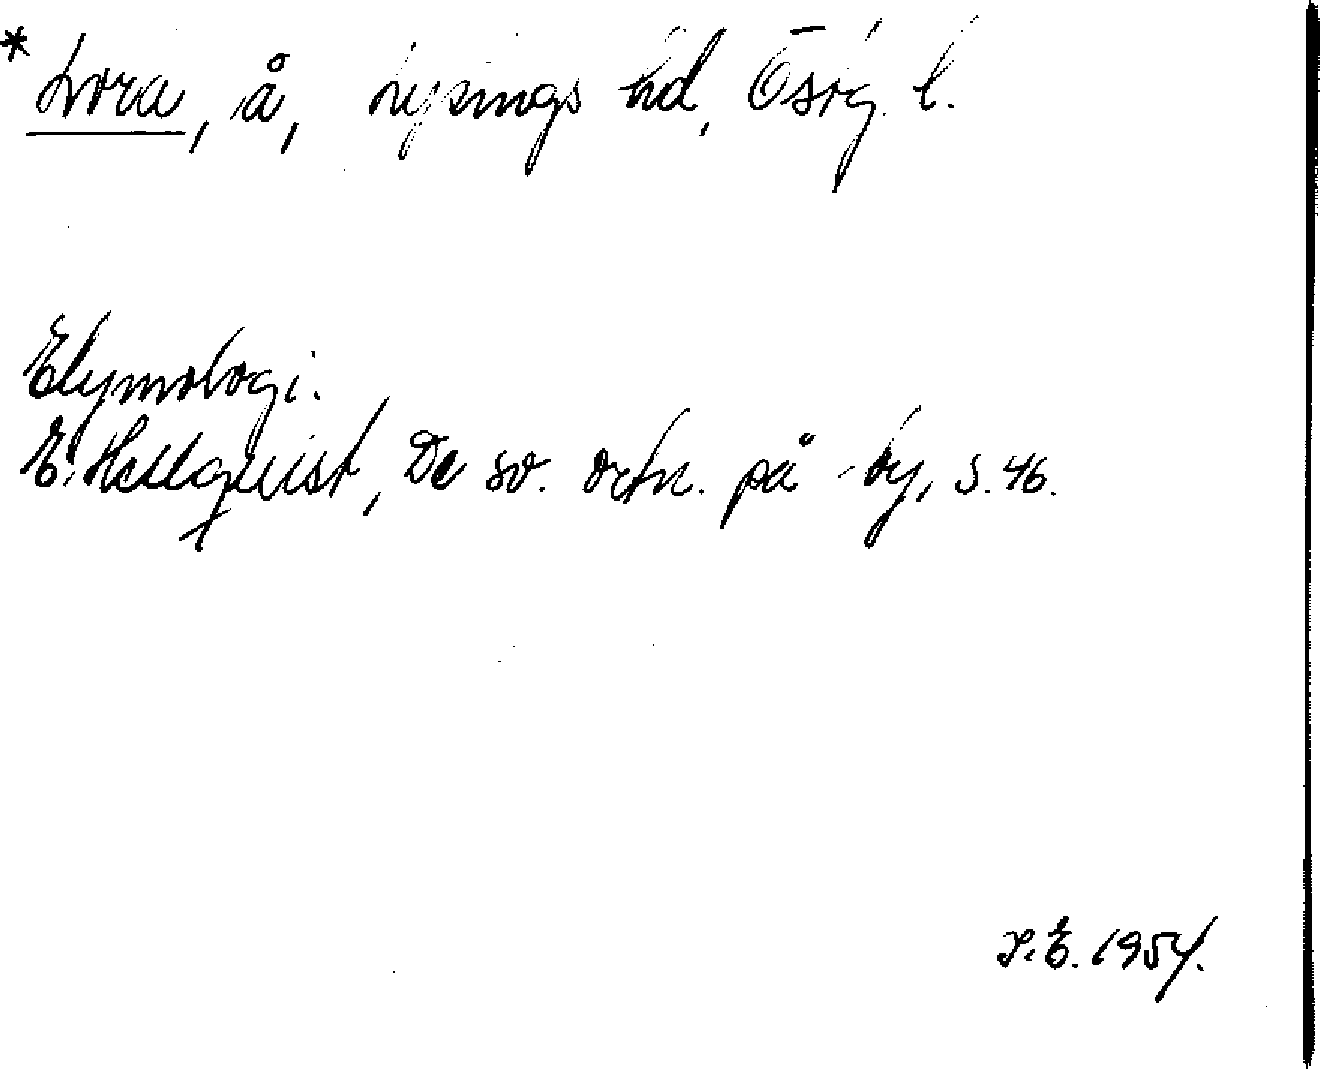 * Lora, å, Lysings hd, Östg. l.
Etymologi.
E. Hellquist, De sv. ortn. på -by, s. 46.
S.E. 1954.